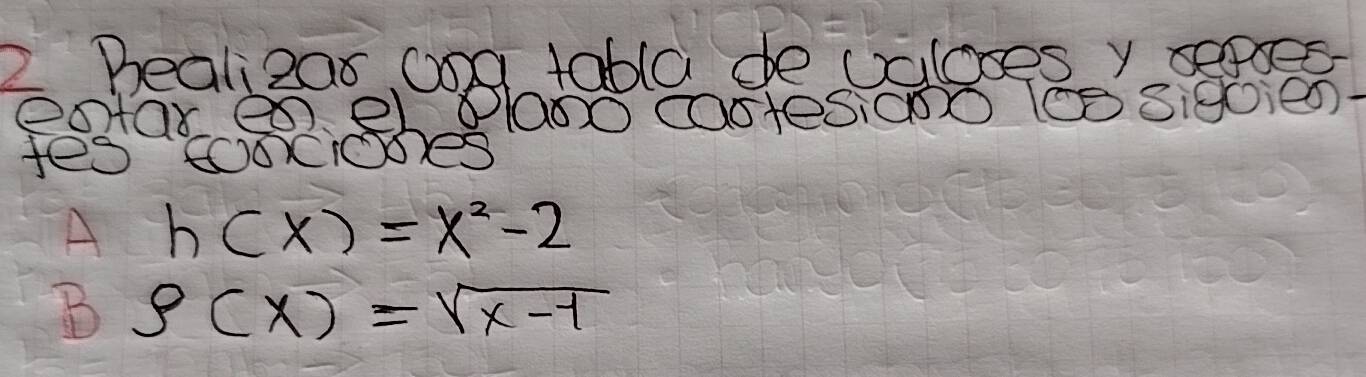 2 Realizar una tabla de valores y repres-
entar en el plano cartesiano las siguien-
tes funciones
A h(x) = x² - 2
B p(x) = √x - 1